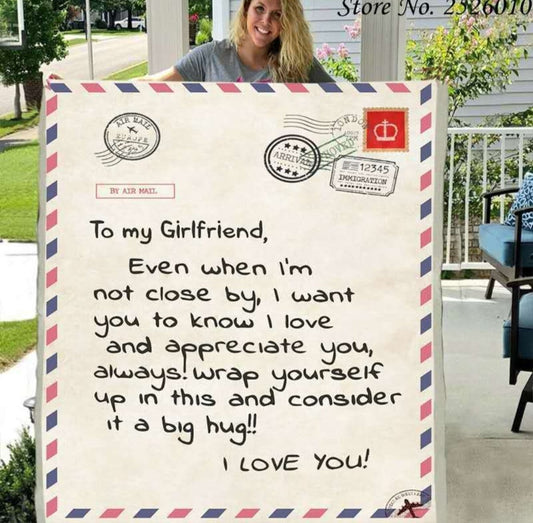 Store No. 2326010
AIR MAIL
EUROPE
LONDON
ARRIVAL
LONDON
12345
IMMIGRATION
BY AIR MAIL
To my Girlfriend,
Even when i'm
not close by, I want
you to know I love
and appreciate you,
always! wrap yourself
up in this and consider
it a big hug!!
I LOVE YOU!